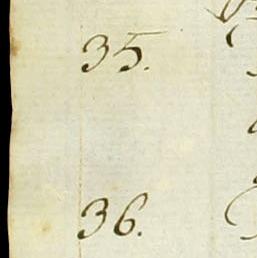 35.
36.